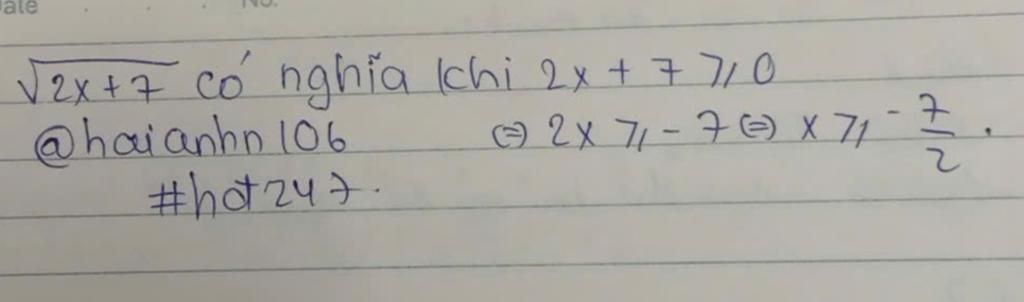 Date No.
√2x+7 có nghĩa khi 2x + 7 ⩾ 0
@haianhn106 ⇔ 2x ⩾ -7 ⇔ x ⩾ -7/2.
#hot247.